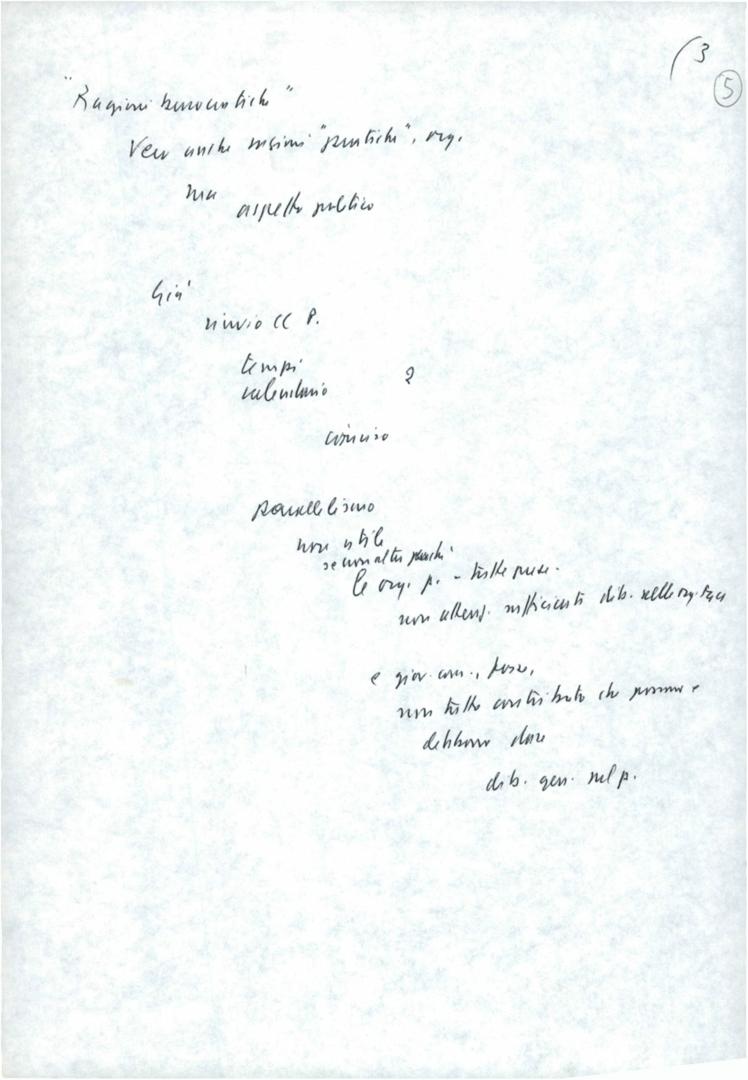 3
5
"Ragioni burocratiche"
Vero anche ragioni "pratiche", org.
ma
aspetto politico
Già
rinvio CC P.
tempi
calendario ?
parallelismo
non utile
se non altro perché
le org. p. - tutte prese.
non attenz. sufficiente dib. nelle org.
e giov. com., forse,
non tutto contributo che possono e
debbono dare
dib. gen. nel p.